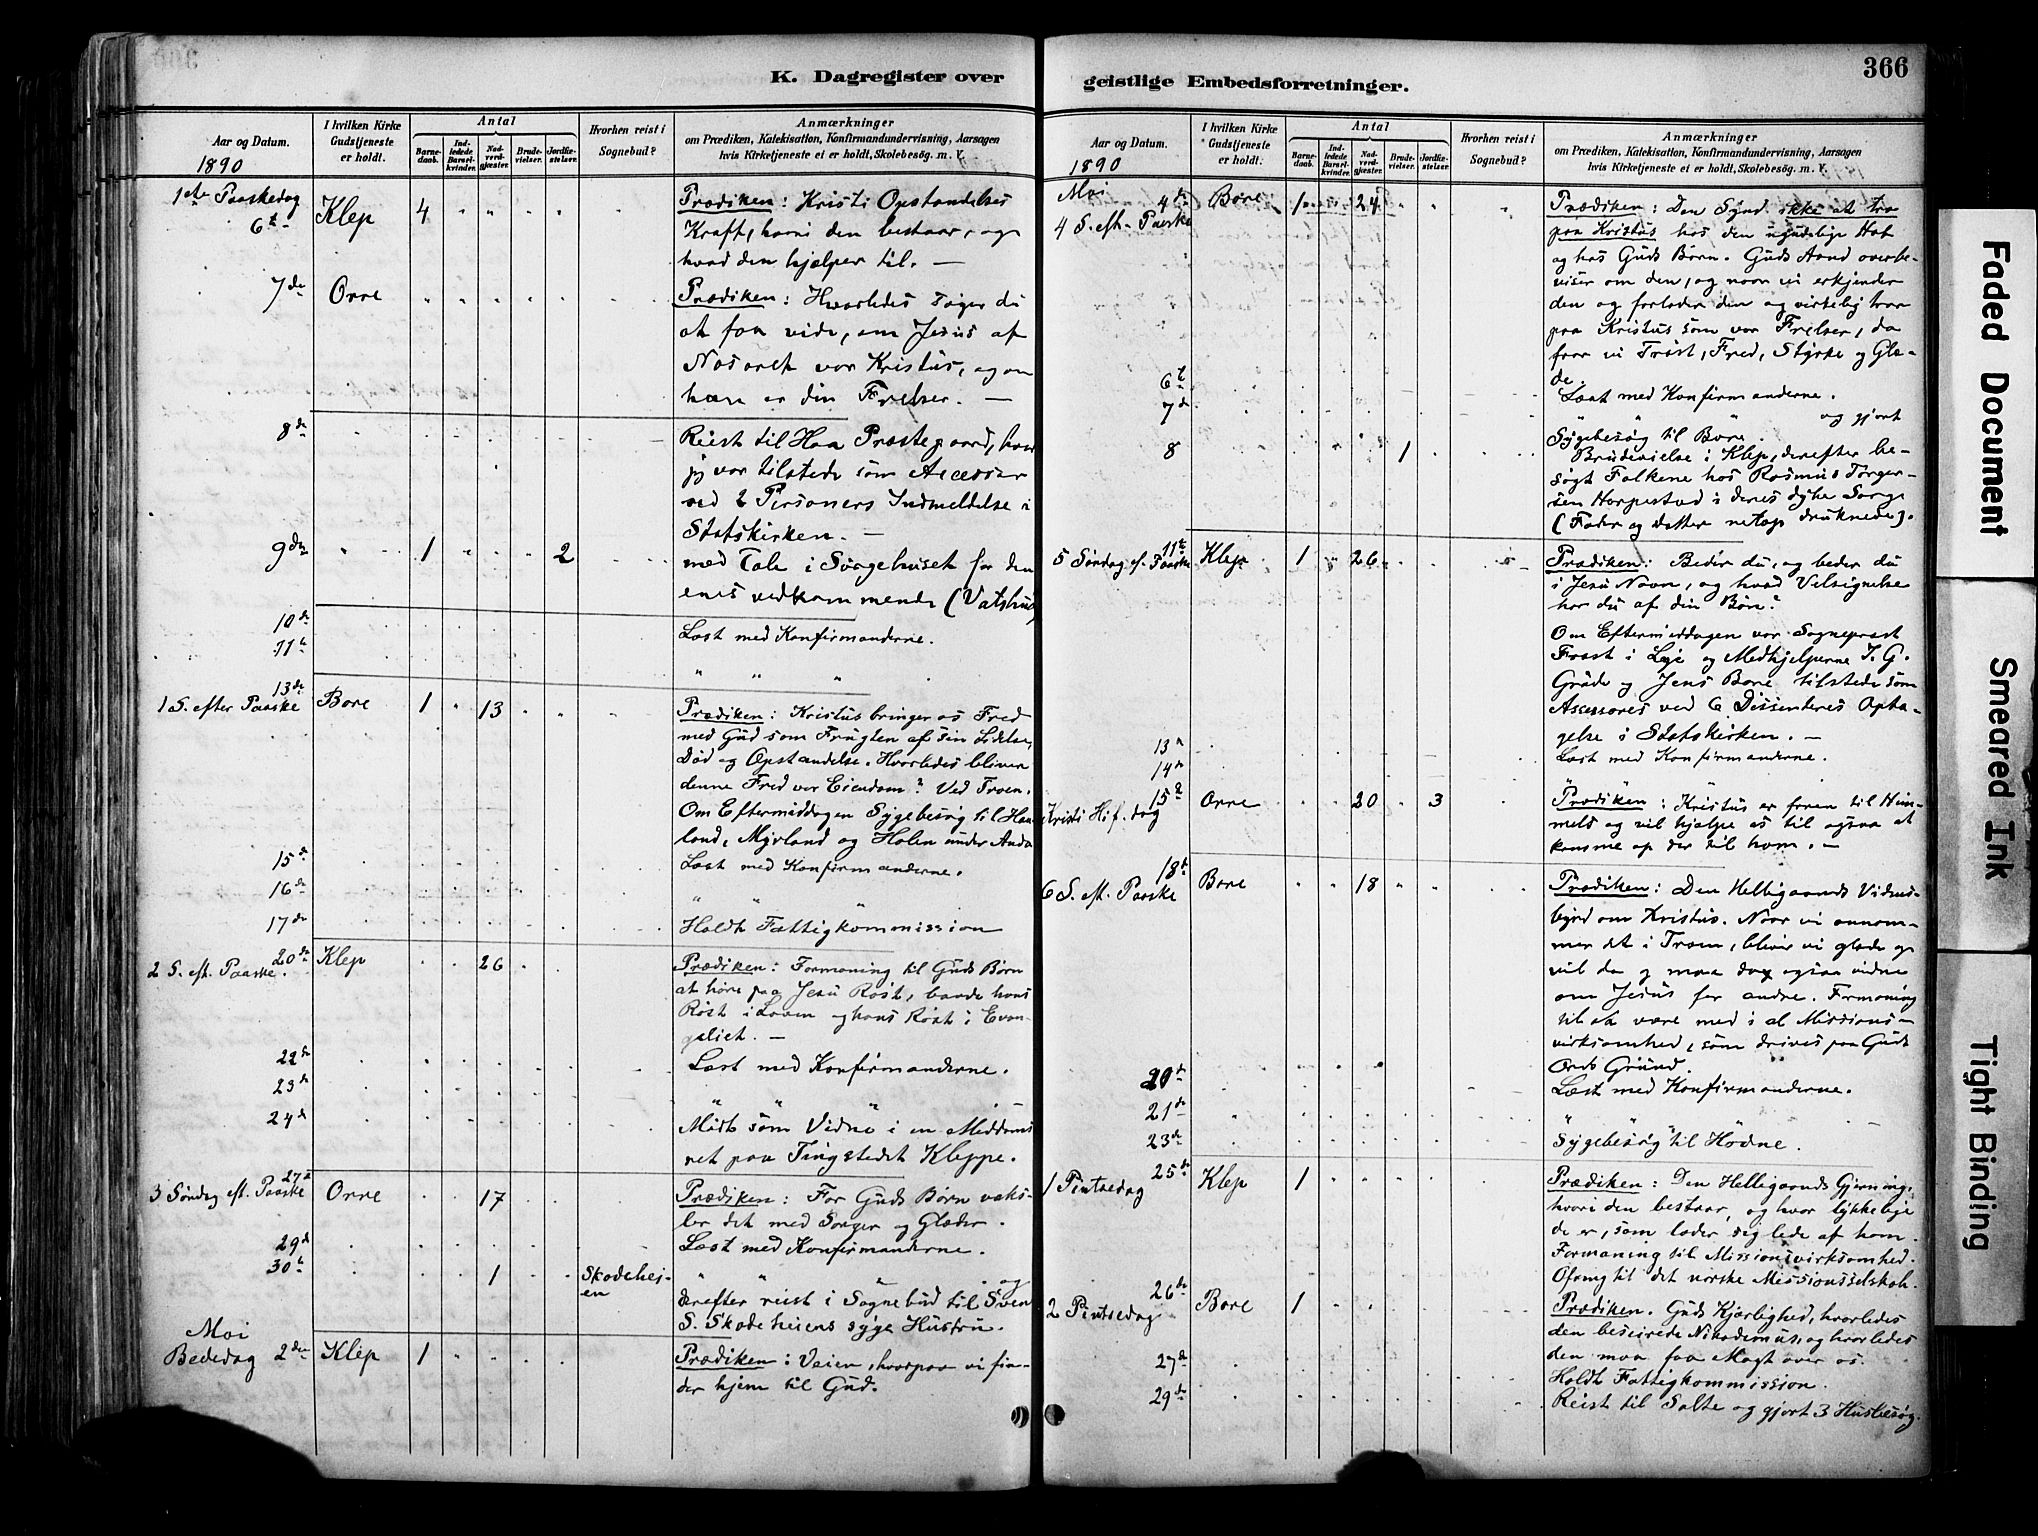 K. Dagregister over
Aar og Datum.
I hvilken Kirke Gudstjeneste er holdt.
Antal
Barne-daab.
Ind-ledede Barsel-kvinder.
Nad-verd-gjæster.
Brude-vielser.
Jordfæ-stelser.
Hvorhen reist i Sognebud?
Anmærkninger
om Prædiken, Katekisation, Konfirmandundervisning, Aarsagen
hvis Kirketjeneste ei er holdt, Skolebesøg. m. V.
1890
1ste Paaskedag
6te Klep 4 Prædiken: Kristi Opstandelses
Kraft, hvori den bestaar, og
hvad den hjælper til. —
7de Orre Prædiken: Hvorledes søger du
at faa vide, om Jesus af
Nasaret var Kristus, og om
han er din Frelser. —
8de Reist til Haa Præstegaard, hvor
jeg var tilstede som Accessor
ved 2 Personers Indmeldelse i
Statskirken. —
9de 1 2 med Tale i Sørgehuset for den
enes vedkommende (Vatshus)
10de Læst med Konfirmanderne.
11te " " "
13de
1 S. efter Paaske Bore 1 13 Prædiken: Kristus bringer os Fred
med Gud som Frugten af sin Lidelse,
Død og Opstandelse. Hvorledes bliver
denne Fred vor Eiendom? Ved Troen.
Om Eftermiddagen Sygebesøg til Hau-
land, Myrland og Holen under Anda
15de Læst med Konfirmanderne.
16de " " "
17de Holdt Fattigkommission
20de
2 S. eft. Paaske. Klep 26 Prædiken: Formaning til Guds Børn
at høre paa Jesu Røst, baade hans
Røst i Loven og hans Røst i Evan-
geliet. —
22de Læst med Konfirmanderne.
23de " " "
24de Mødt som Vidne i en Meddoms
ret paa Tingstedet Kleppe.
27de
3 Søndag eft. Paaske Orre 17 Prædiken: For Guds Børn veks-
ler det med Sorger og Glæder.
29de Læst med Konfirmanderne.
30te 1 Skodehei-en " " " og
derefter reist i Sognebud til Sven
S. Skodeheiens syge Hustru.
Mai
Bededag 2den Klep 1 Prædiken: Veien, hvorpaa vi fin-
der hjem til Gud.
geistlige Embedsforretninger.
366
Aar og Datum.
I hvilken Kirke Gudstjeneste er holdt.
Antal
Barne-daab.
Ind-ledede Barsel-kvinder.
Nad-verd-gjæster.
Brude-vielser.
Jordfæ-stelser.
Hvorhen reist i Sognebud?
Anmærkninger
om Prædiken, Katekisation, Konfirmandundervisning, Aarsagen
hvis Kirketjeneste ei er holdt, Skolebesøg. m. V.
1890
Mai 4de
4 S. eft. Paaske Bore 1 24 Prædiken: Den Synd ikke at tro
paa Kristus hos den ugudelige Hob
og hos Guds Børn. Guds Aand overbe-
viser om den, og naar vi erkjender
den og forlader den og virkelig tror
paa Kristus som vor Frelser, da
faar vi Trøst, Fred, Styrke og Glæ-
de.
6te Læst med Konfirmanderne.
7de " " " og gjort
Sygebesøg til Bore.
8 1 Brudevielse i Klep, derefter be-
søgt Folkene hos Rasmus Torger-
sen Horpestad i deres dybe Sorg.
(Fader og Datter netop druknede).
11te
5 Søndag ef. Paaske Klep 1 26 Prædiken: Beder du, og beder du
i Jesu Navn, og hvad Velsignelse
har du af din Bøn?
Om Eftermiddagen var Sognepræst
Frost i Lye og Medhjelperne T. G.
Grude og Jens Bore tilstede som
Accessores ved 6 Dissenteres Opta-
gelse i Statskirken. —
13de Læst med Konfirmanderne.
14de " " "
15de
Kristi Hif. dag Orre 20 3 Prædiken: Kristus er faren til Him-
mels og vil hjælpe os til ogsaa at
komme op der til ham. —
18de
6 S. eft. Paaske Bore 18 Prædiken: Den Helligaands Vidnes-
byrd om Kristus. Naar vi annam-
mer det i Troen, bliver vi glade og
vil da og maa da ogsaa vidne
om Jesus for andre. Formaning
til at være med i al Missions-
virksomhed, som drives paa Guds
Ords Grund.
20de Læst med Konfirmanderne.
21de " " "
23de Sygebesøg til Hodne.
25de
1 Pintsedag Klep 1 Prædiken: Den Helligaands Gjerning,
hvori den bestaar, og hvor lykkelige
de er, som lader sig lede af ham.
Formaning til Missionsvirksomhed.
Ofring til det norske Missionsselskab.
26de
2 Pintsedag Bore 1 Prædiken. Guds Kjærlighed, hvorledes
den beseirede Nikodemus, og hvorledes
den maa faa Magt over os.
27de Holdt Fattigkommission.
29de Reist til Salte og gjort 3 Husbesøg.
Faded Document
Smeared Ink
Tight Binding